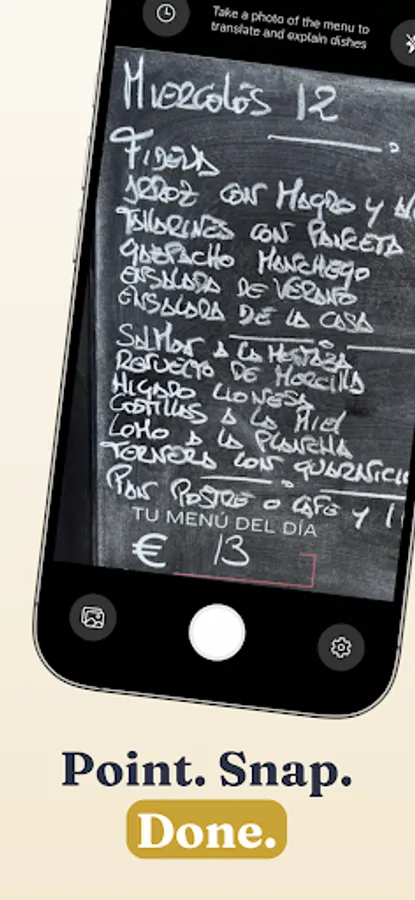 Take a photo of the menu to
translate and explain dishes
Miercolós 12
Fideua
Arroz con Magro y
Tallarines con Panceta
Gazpacho Manchego
Ensalada de Verano
Ensalada de la Casa
Salmon a la Mostaza
Revuelto de Morcilla
Higado Lionesa
Costillas a la Miel
Lomo a la Plancha
Ternera con guarnicio
Pan Postre o Cafe y 1
TU MENÚ DEL DÍA
€ 13
Point. Snap.
Done.